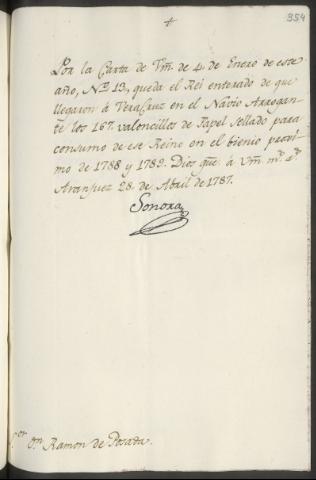 354
Por la Carta de Vm. de 4 de Enero de este
año, N.º 13, queda el Rei enterado de que
llegaron á Veracruz en el Navio Arrogan-
te los 167. valoncillos de Papel Sellado para
consumo de ese Reino en el bienio proxi-
mo de 1788 y 1789. Dios gue. á Vm. m.s a.s
Aranjuez 28 de Abril de 1787.
Sonora
S.or D.n Ramon de Posada.